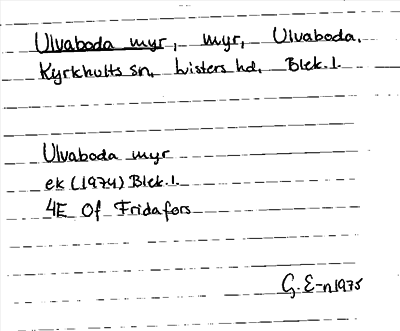 Ulvaboda myr, myr, Ulvaboda,
Kyrkhults sn, Listers hd. Blek. l.
Ulvaboda myr
ek (1974) Blek. l.
4E Of Fridafors
G. E-n 1975